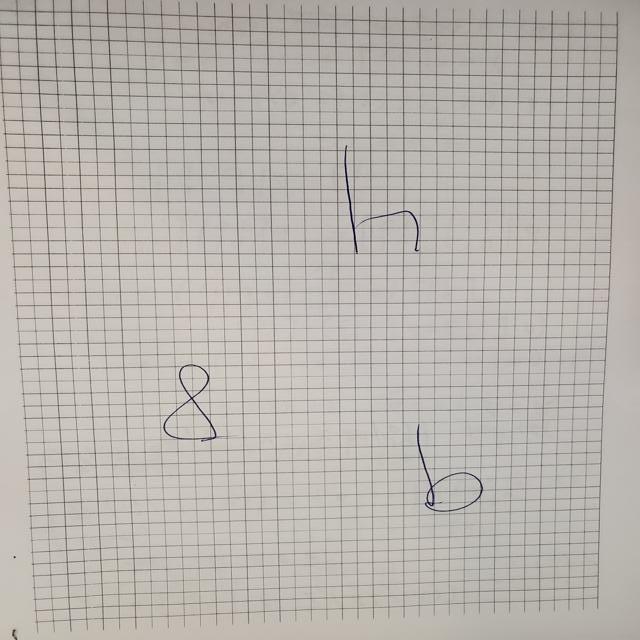 h
8
b